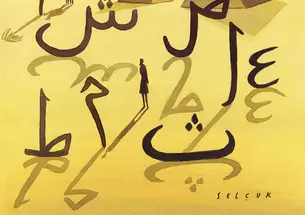 ع
ل م
ث ط
SELÇUK